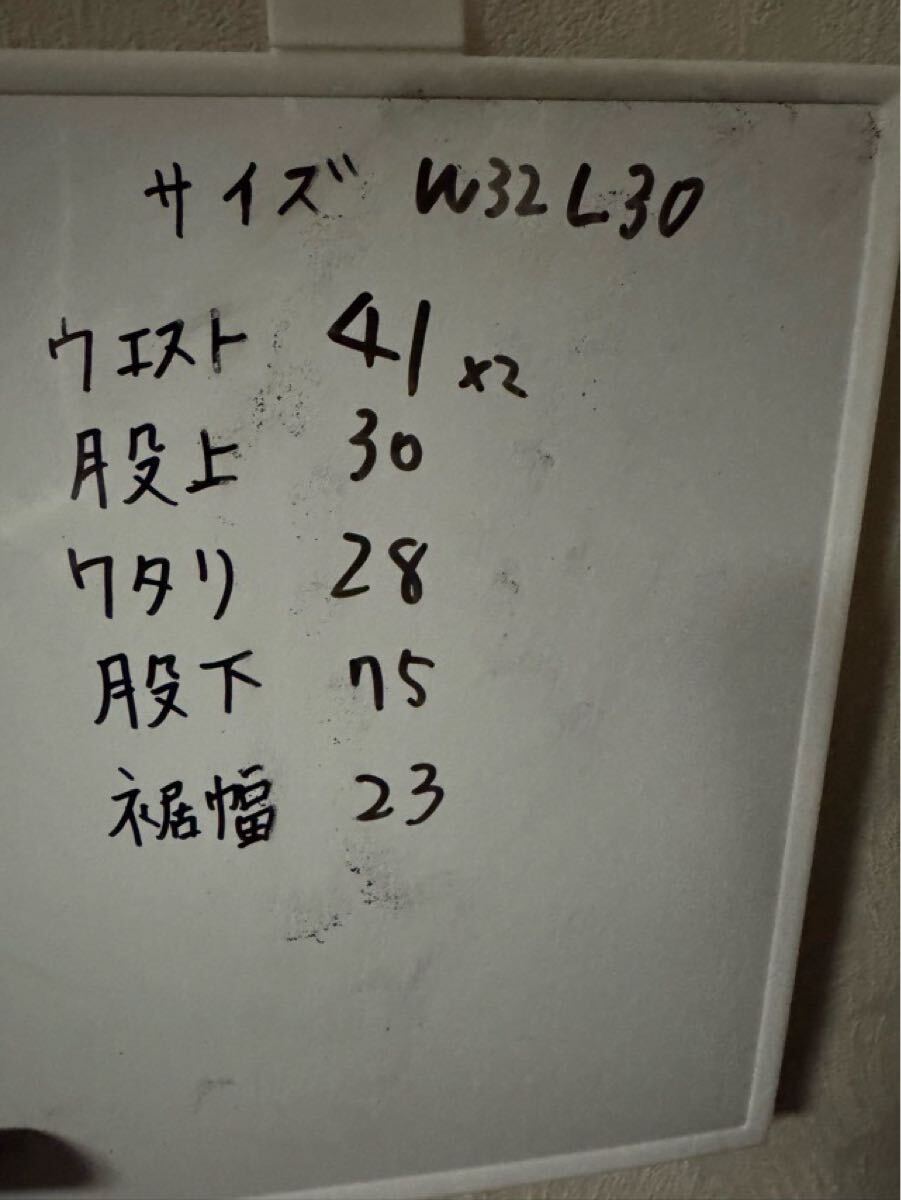 サイズ W32 L30
ウエスト 41 x2
股上 30
ワタリ 28
股下 75
裾幅 23